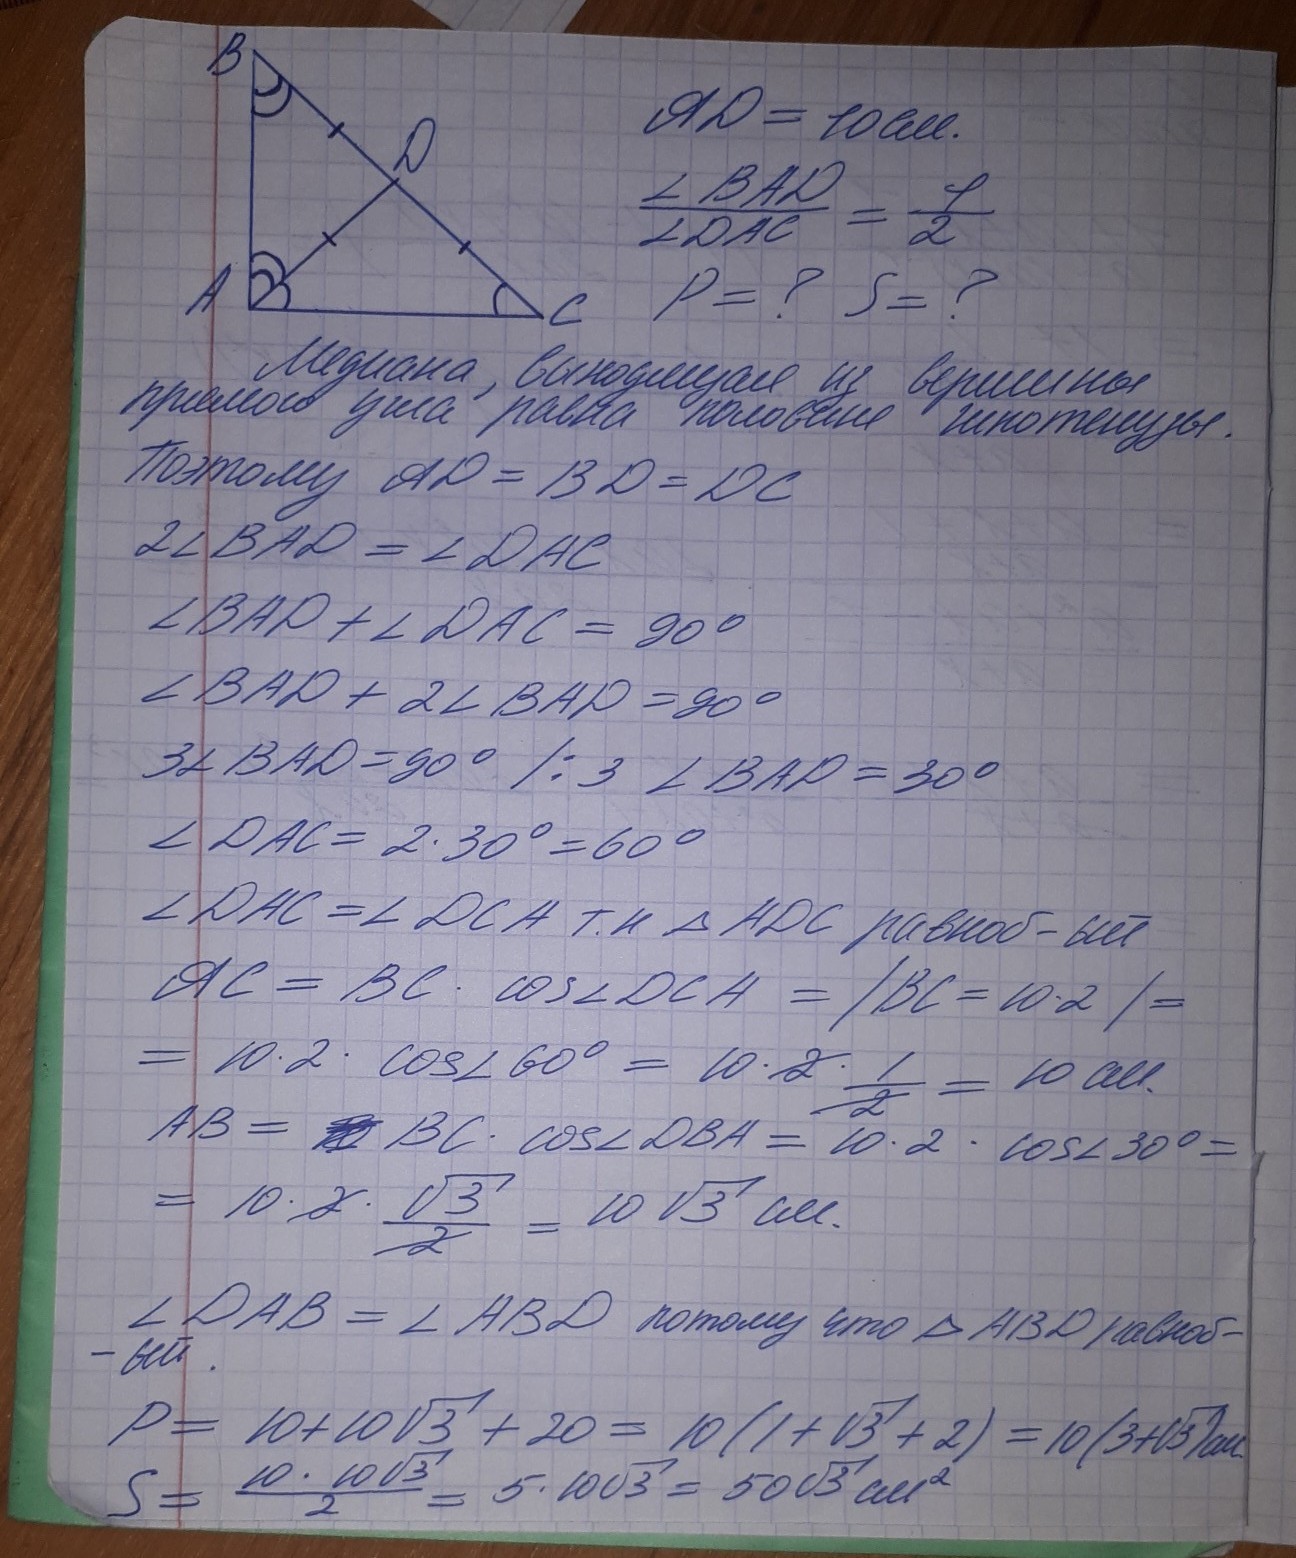 B
D
A
C
AD = 10 см.
∠BAD / ∠DAC = 1/2
P = ? S = ?
Медиана, выходящая из вершины
прямого угла равна половине гипотенузы.
Поэтому AD = BD = DC
2∠BAD = ∠DAC
∠BAD + ∠DAC = 90°
∠BAD + 2∠BAD = 90°
3∠BAD = 90° /:3 ∠BAD = 30°
∠DAC = 2·30° = 60°
∠DAC = ∠DCA т.к △ADC равноб-ый
AC = BC · cos∠DCA = /BC = 10·2/ =
= 10·2· cos∠60° = 10·2· 1/2 = 10 см.
AB = BC · cos∠DBA = 10·2 · cos∠30° =
= 10·2· √3/2 = 10√3 см.
∠DAB = ∠ABD потому что △ABD равноб-
-ый.
P = 10+10√3 + 20 = 10(1+√3+2) = 10(3+√3) см
S = 10·10√3/2 = 5·10√3 = 50√3 см²